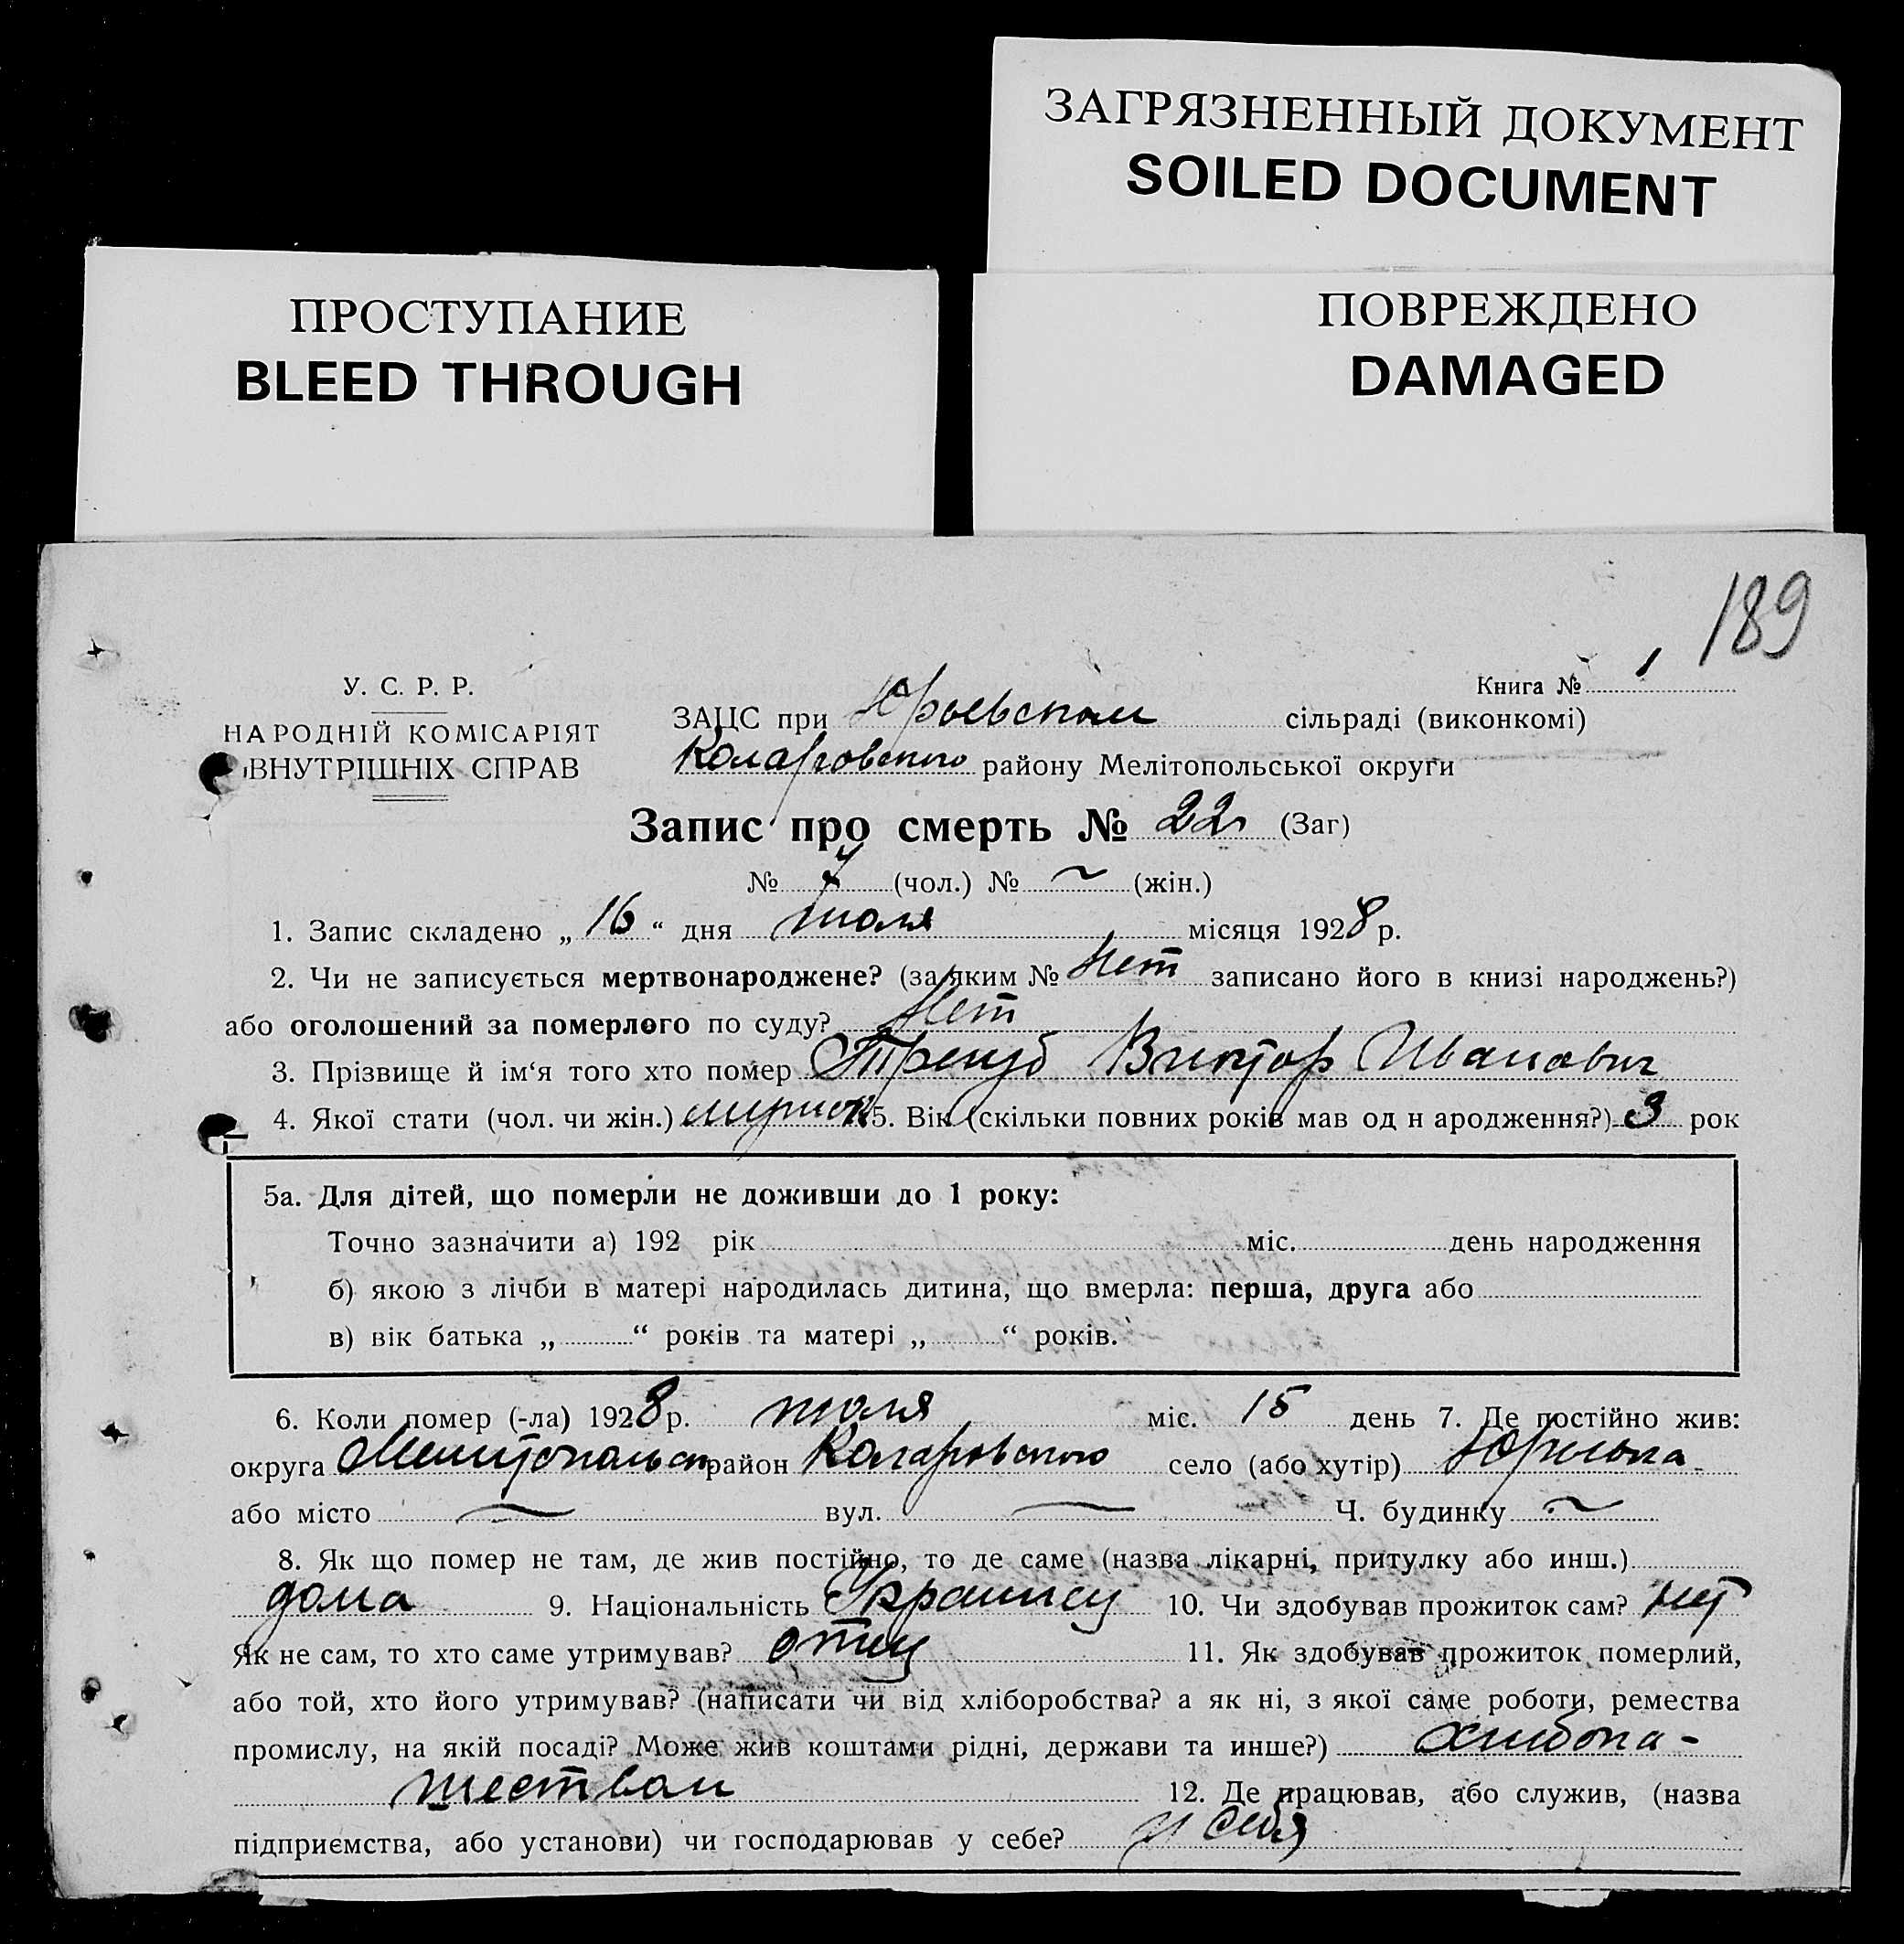 ЗАГРЯЗНЕННЫЙ ДОКУМЕНТ
SOILED DOCUMENT
ПРОСТУПАНИЕ
BLEED THROUGH
ПОВРЕЖДЕНО
DAMAGED
189
У. С. Р. Р.
НАРОДНІЙ КОМІСАРІЯТ
ВНУТРІШНІХ СПРАВ
Книга № 1
ЗАЦС при Юрьевском сільраді (виконкомі)
Коларовского району Мелітопольської округи
Запис про смерть № 22 (Заг)
№ 7 (чол.) № ~ (жін.)
1. Запис складено „ 16 “ дня июля місяця 1928 р.
2. Чи не записується мертвонароджене? (за яким № Нет записано його в книзі народжень?)
або оголошений за померлого по суду? Нет
3. Прізвище й ім‘я того хто помер Трегуб Виктор Иванович
4. Якої стати (чол. чи жін.) 5. Вік (скільки повних років мав од н ародження?) 3 рок
5а. Для дітей, що померли не доживши до 1 року:
Точно зазначити а) 192 рік міс. день народження
б) якою з лічби в матері народилась дитина, що вмерла: перша, друга або
в) вік батька „ “ років та матері „ “ років.
6. Коли помер (-ла) 1928 р. июля міс. 15 день 7. Де постійно жив:
округа район Коларовского село (або хутір) Юрьевка
або місто — вул. — Ч. будинку ~
8. Як що помер не там, де жив постійно, то де саме (назва лікарні, притулку або инш.)
дома 9. Національність Украинец 10. Чи здобував прожиток сам? нет
Як не сам, то хто саме утримував? отец 11. Як здобував прожиток померлий,
або той, хто його утримував? (написати чи від хліборобства? а як ні, з якої саме роботи, ремества
промислу, на якій посаді? Може жив коштами рідні, держави та инше?) хлебопа-
шеством 12. Де працював, або служив, (назва
підприємства, або установи) чи господарював у себе? у себя